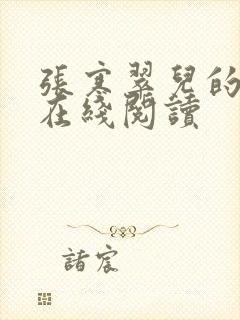 張寒翠兒的
在綫閱讀
諸宸